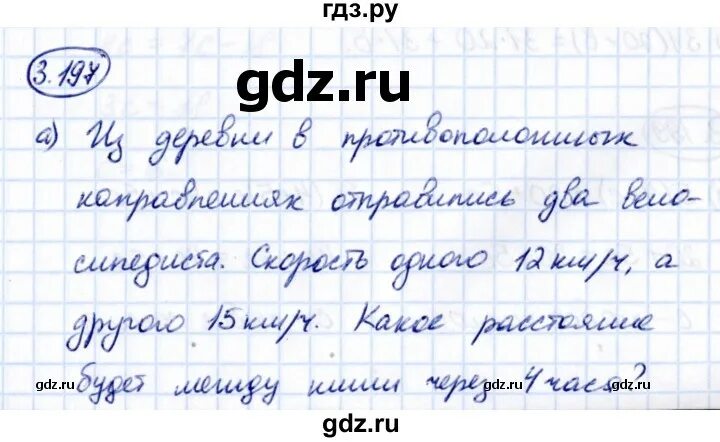 гдз.ру
3.197
gdz.ru
а) Из деревни в противоположных
направлениях отправились два вело-
сипедиста. Скорость одного 12 км/ч, а
другого 15 км/ч. Какое расстояние
gdz.ru gdz.ru
будет между ними через 4 часа?
gdz.ru